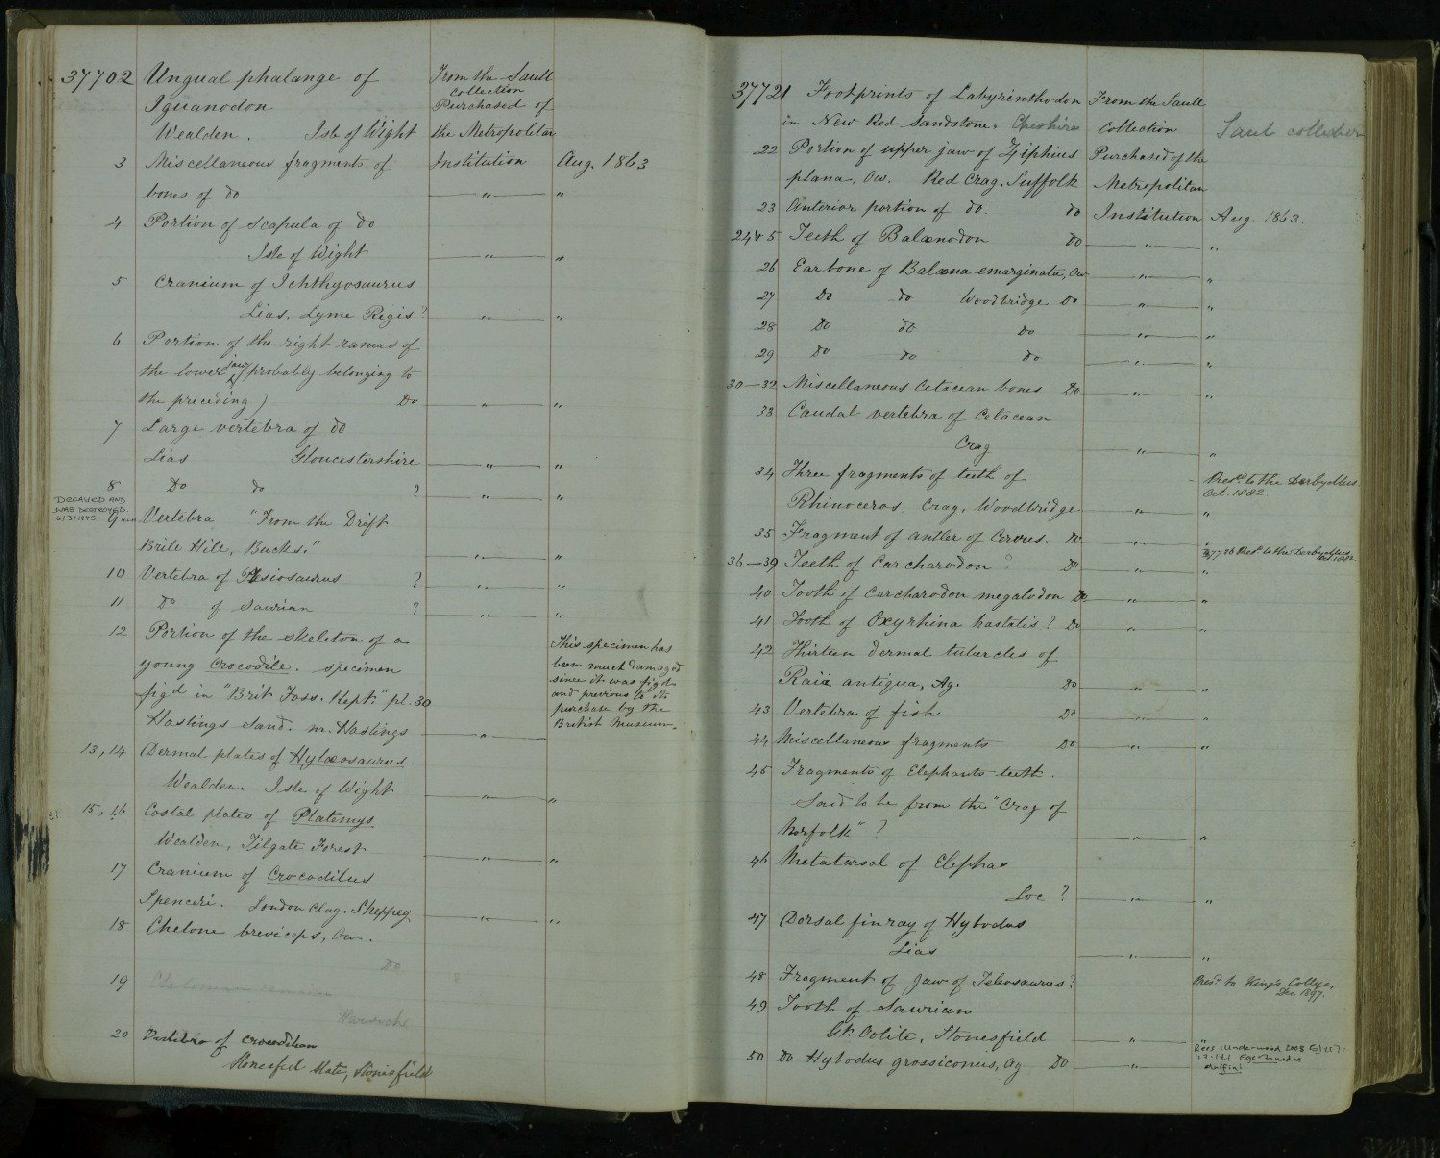 37702 Ungual phalange of From the Saull
collection
Iguanodon Purchased of
Wealden. Isle of Wight the Metropolitan
3 Miscellaneous fragments of Institution Aug. 1863
bones of do " "
4 Portion of Scapula of do
Isle of Wight " "
5 Cranium of Ichthyosaurus
Lias, Lyme Regis? " "
6 Portion of the right ramus of
the lower jaw (probably belonging to
the preceding) Do " "
7 Large vertebra of do
Lias Gloucestershire " "
8 Do do ? " "
DECAYED AND
WAS DESTROYED
9 Vertebra "From the Drift
Brill Hill, Bucks." " "
10 Vertebra of Plesiosaurus ? " "
11 Do of Saurian ? " "
12 Portion of the skeleton of a
young Crocodile. specimen
figd in "Brit Foss. Rept." pl. 30
Hastings Sand. nr. Hastings "
This specimen has
been much damaged
since it was figd
and previous to its
purchase by the
British Museum.
13, 14 Dermal plates of Hylæosaurus
Wealden. Isle of Wight " "
15, 16 Costal plates of Platemys
Wealden, Tilgate Forest " "
17 Cranium of Crocodilus
Spenceri. London Clay. Sheppey " "
18 Chelone breviceps, Ow.
Do
19 Chelonian remains
20 Vertebra of crocodilian
Stonesfield Slate, Stonesfield
37721 Footprints of Labyrinthodon From the Saull
in New Red Sandstone. Cheshire Collection Saull collection
22 Portion of upper jaw of Ziphius Purchased of the
plana, Ow. Red Crag. Suffolk Metropolitan
23 Anterior portion of do. do Institution Aug. 1863.
24 & 5 Teeth of Balænodon do " "
26 Ear bone of Balæna emarginata, Ow " "
27 Do do Woodbridge Do " "
28 Do do Do " "
29 Do do do " "
30—32 Miscellaneous Cetacean bones Do " "
33 Caudal vertebra of Cetacean
Crag " "
34 Three fragments of teeth of Presd to the Derby Mus.
Oct. 1882.
Rhinoceros. Crag, Woodbridge " "
35 Fragment of antler of Cervus. Do " "
37736 Presd to the Derby Mus. Oct. 1882.
36—39 Teeth of Carcharodon ? Do " "
40 Tooth of Carcharodon megalodon Do " "
41 Tooth of Oxyrhina hastalis? Do " "
42 Thirteen dermal tubercles of
Raia antiqua, Ag. Do " "
43 Vertebra of fish Do " "
44 Miscellaneous fragments Do " "
45 Fragments of Elephants teeth.
Said to be from the "Crag of
Norfolk" ? " "
46 Metatarsal of Elephas
Loc ? " "
47 Dorsal fin ray of Hybodus
Lias " "
48 Fragment of Jaw of Teleosaurus? Presd to King's College,
Dec 1897.
49 Tooth of Saurian
Gt. Oolite, Stonesfield " "
50 Do Hybodus grossiconus, Ag Do "